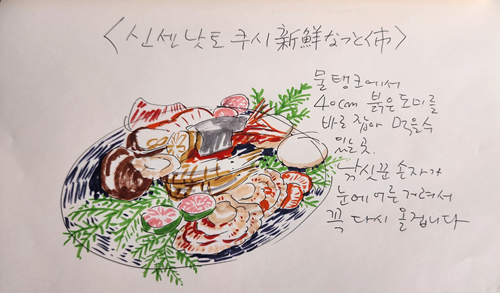 <신센낫토쿠시 新鮮なっと佈>
물탱크에서
40cm 붉은 도미를
바로 잡아 먹을수
있는 곳.
낚싯꾼 손자가
눈에 어른거려서
꼭 다시 올겁니다